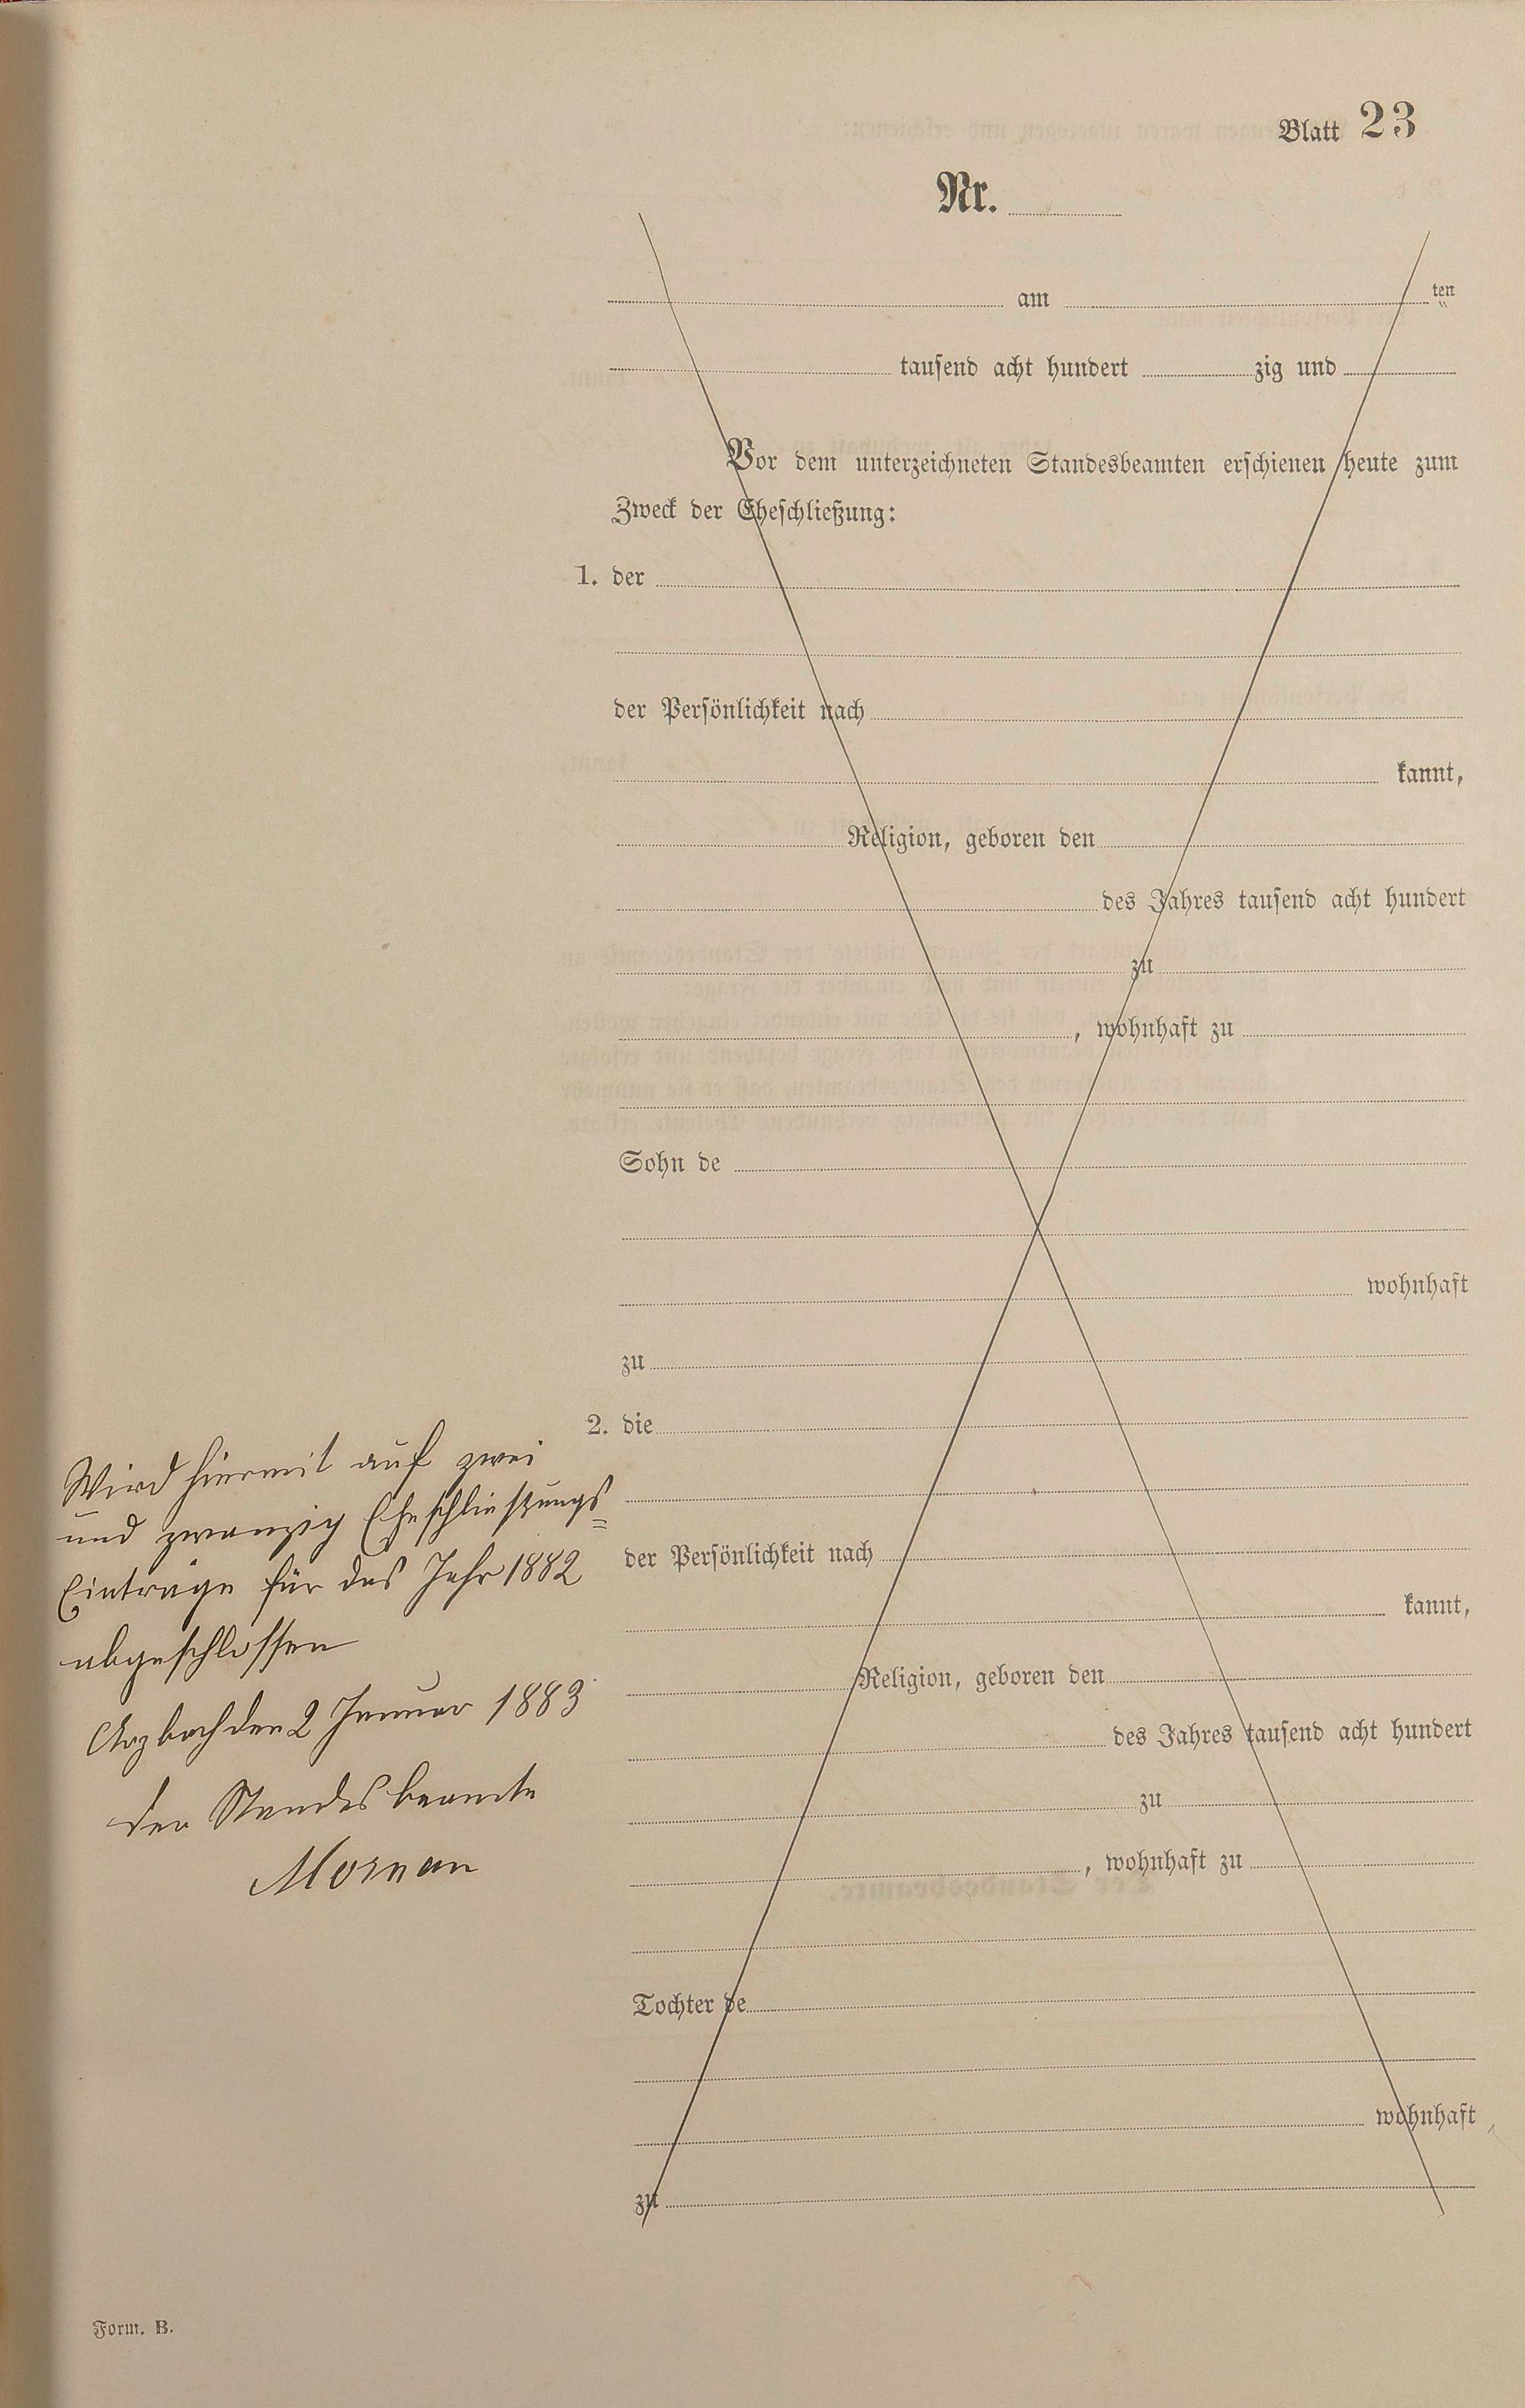 Blatt 23
Nr.
am ten
tausend acht hundert zig und
Vor dem unterzeichneten Standesbeamten erschienen heute zum
Zweck der Eheschließung:
1. der
der Persönlichkeit nach
kannt,
Religion, geboren den
des Jahres tausend acht hundert
zu
, wohnhaft zu
Sohn de
wohnhaft
zu
2. die
der Persönlichkeit nach
kannt,
Religion, geboren den
des Jahres tausend acht hundert
zu
, wohnhaft zu
Tochter de
wohnhaft
zu
Wird hiermit auf zwei
und zwanzig Eheschließungs=
Einträge für das Jahr 1882
abgeschlossen
Arzbach den 2 Januar 1883
der Standesbeamte
Form. B.